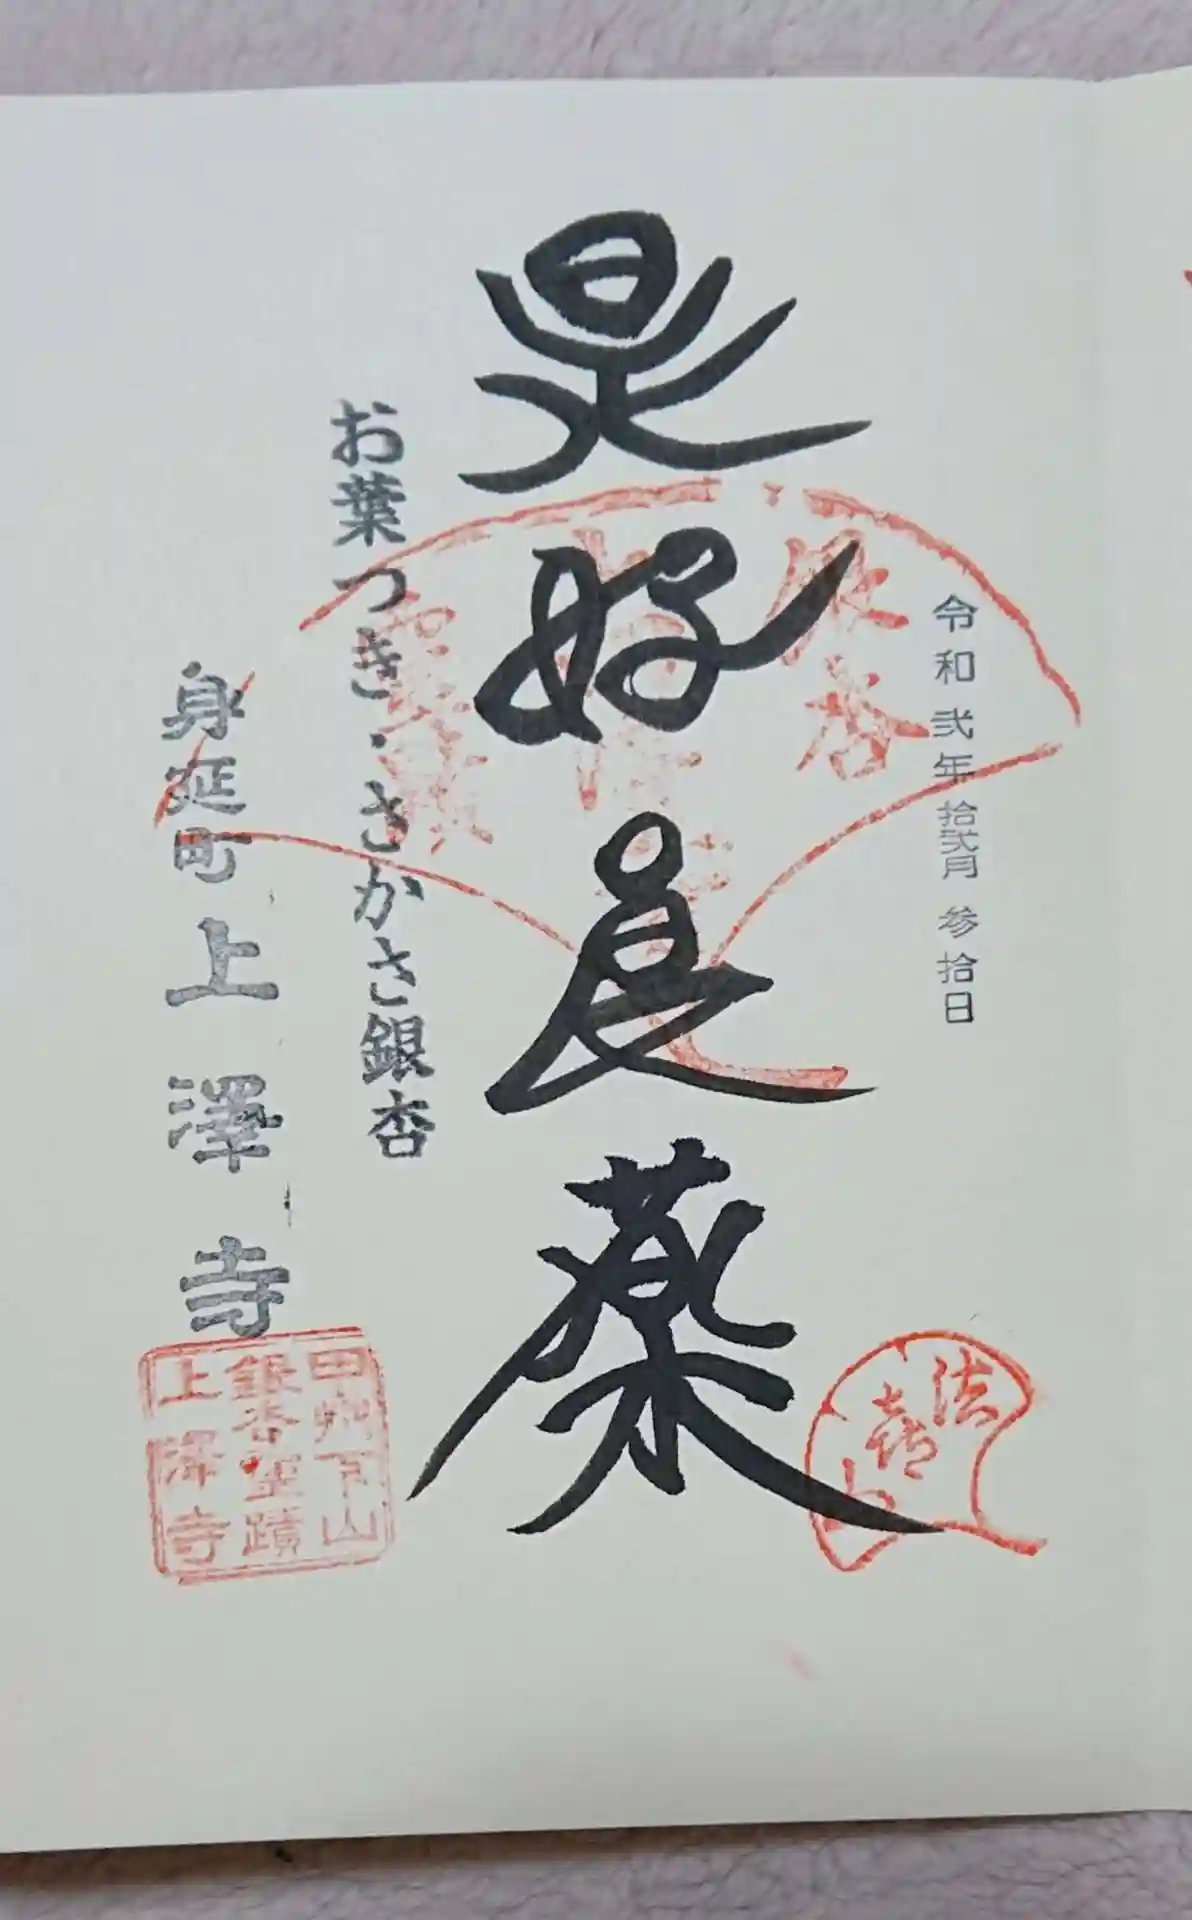 令和弐年拾弐月参拾日
是好良薬
お葉つき・さかさ銀杏
身延町上澤寺
銀杏
霊蹟
法喜山
甲州下山
銀杏霊蹟
上澤寺